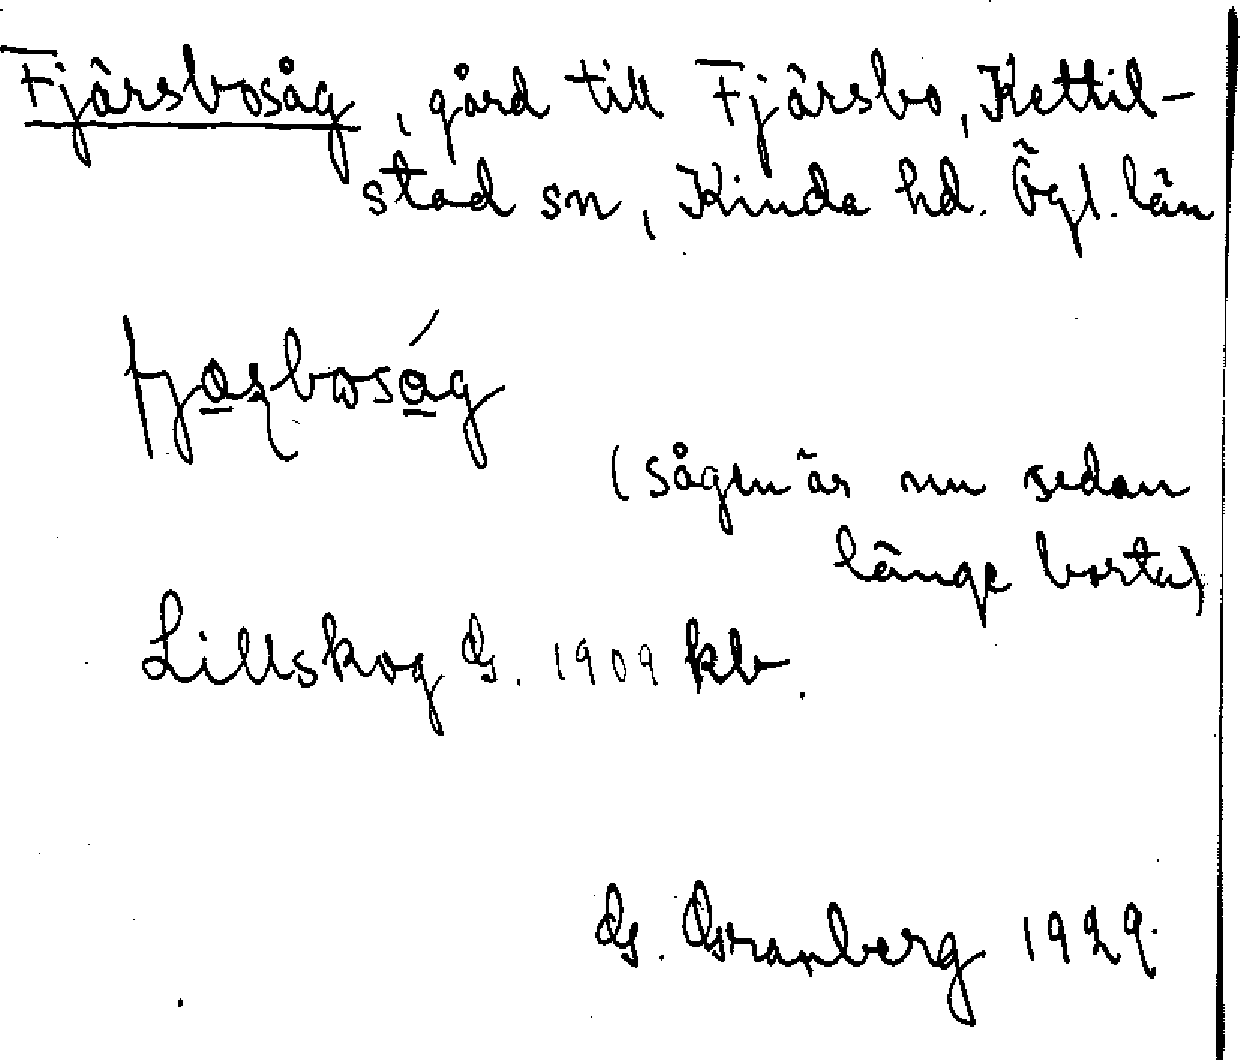 Fjärsbosåg, gård till Fjärsbo, Kettil-
stad sn, Kinda hd. Ögl. län
(sågen är nu sedan
länge borta)
Lillskog G. 1909 kb.
G. Granberg 1929.